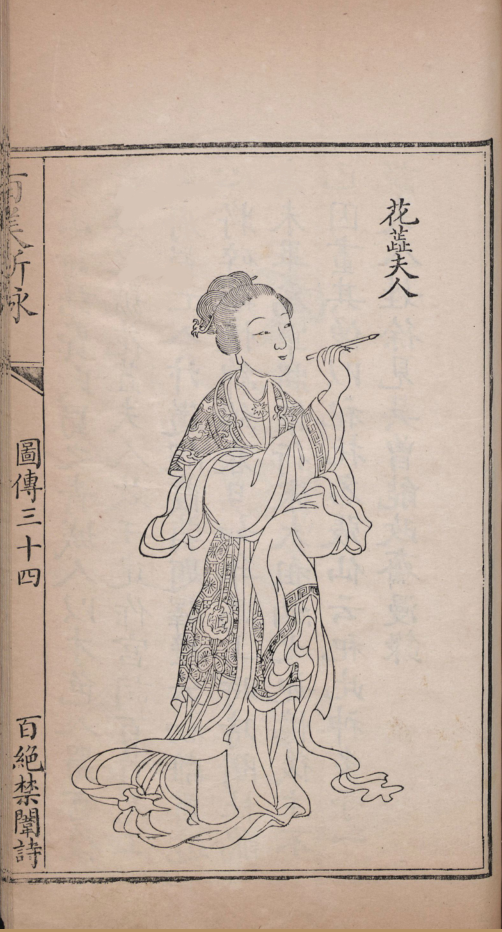 花蕊夫人
百美新詠
圖傳三十四
百絕禁闈詩